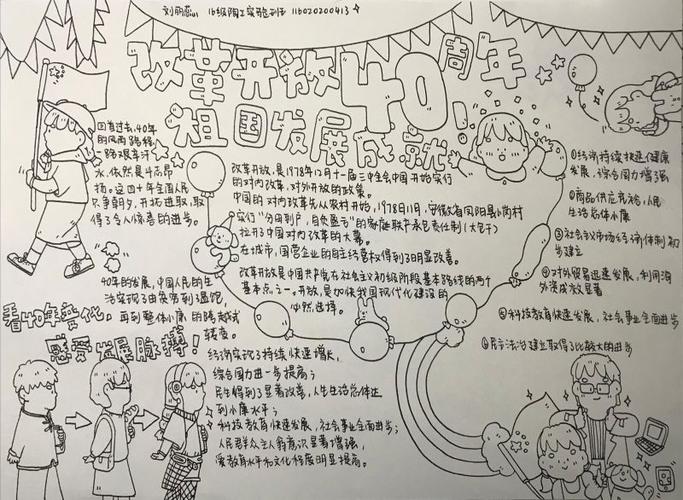 刘丽燕 16级陶工实验班 116020200413
改革开放40周年
祖国发展成就
回首过去,40年
的风雨路程
一路艰辛汗
水,依然是斗志昂
扬。这四十年全国人民
只争朝夕,开拓进取,取
得了令人惊喜的进步。
改革开放,是1978年12月十一届三中全会中国开始实行
的对内改革,对外开放的政策。
中国的对内改革先从农村开始,1978年11月,安徽省凤阳县小岗村
实行"分田到户,自负盈亏"的家庭联产承包责任制(大包干)
拉开了中国对内改革的大幕。
在城市,国营企业的自主经营权得到了明显改善。
改革开放是中国共产党在社会主义初级阶段基本路线的两个
基本点之一。开放,是加快我国现代化建设的
必然选择。
①经济持续快速健康
发展,综合国力增强
②商品供应充裕,人民
生活总体小康
③社会主义市场经济体制初
步建立
④对外贸易迅速发展,利用海
外资成效显著
⑤科技教育快速发展,社会事业全面进步
⑥民主法治建立取得了比较大的进步
40年的发展,中国人民的生
活实现了由贫穷到温饱,
再到整体小康的跨越式
转变。
看40年变化,
感受发展脉搏!
经济实现了持续快速增长,
综合国力进一步提高;
民生得到了显著改善,人民生活总体达
到小康水平;
科技教育快速发展,社会事业全面进步;
人民群众主人翁意识显著增强,
受教育水平和文化程度明显提高。